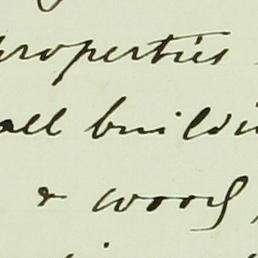 properties
all buildi
& wood,